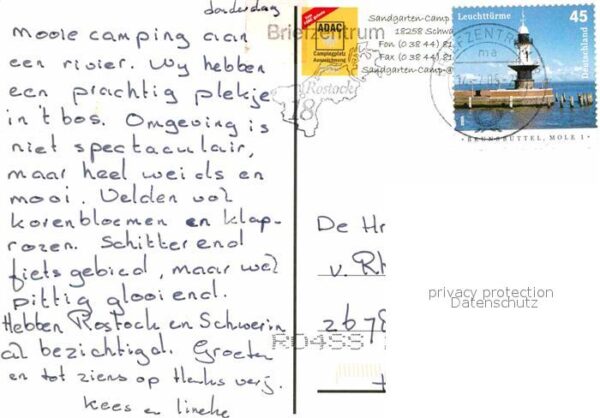 donderdag
Mooie camping aan
een rivier. Wy hebben
een prachtig plekje
in 't bos. Omgeving is
niet spectaculair,
maar heel weids en
mooi. Velden vol
korenbloemen en klap-
rozen. Schitterend
fietsgebied, maar wel
pittig glooiend.
Hebben Rostock en Schwerin
al bezichtigd. Groeten
en tot ziens op Henks verj.
Kees en lineke
Briefzentrum
18
Rostock
ADAC
Campingplatz
Auszeichnung
Sandgarten-Camp
18258 Schwa
Fon (0 38 44) 81
Fax (0 38 44) 81
Sandgarten-Camp@
Leuchttürme
45
Deutschland
BRUNSBÜTTEL, MOLE 1
De Hr
v. Rh
267
privacy protection
Datenschutz